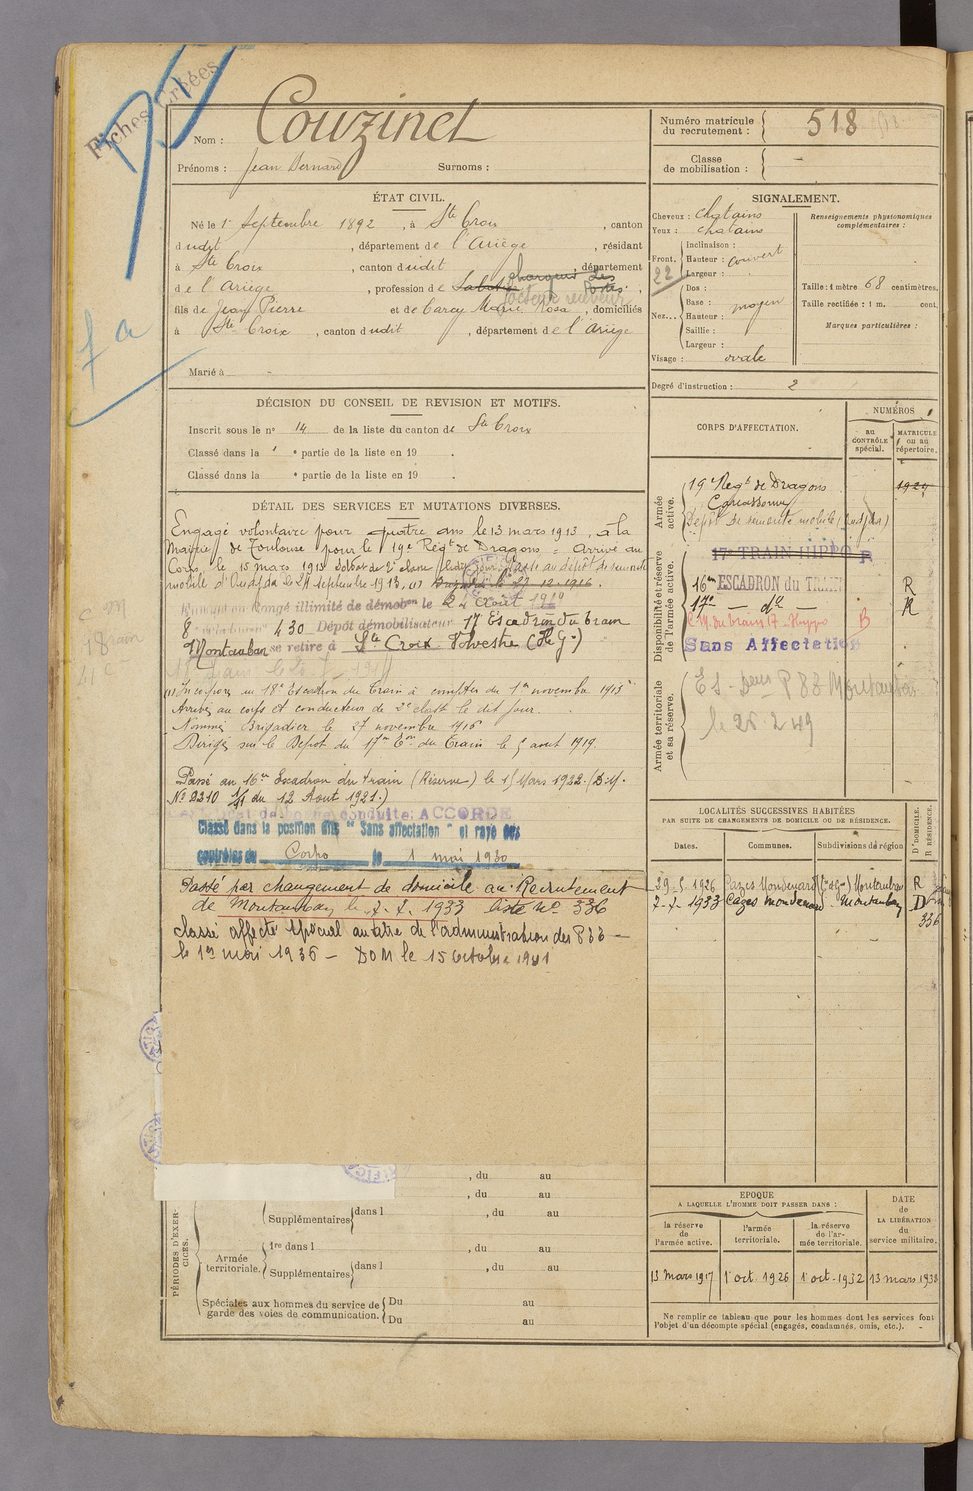 Fiches Créées
Nom : Couzinet
Prénoms : Jean Bernard Surnoms :
Numéro matricule du recrutement : 518
Classe de mobilisation : -
ÉTAT CIVIL.
Né le 1er Septembre 1892, à Ste Croix, canton
dudit, département de l'Ariège, résidant
à Ste Croix, canton dudit, département
de l'Ariège, profession de
facteur receveur
fils de Jean Pierre et de Marie Rosa, domiciliés
à Ste Croix, canton dudit, département de l'Ariège
Marié à -
SIGNALEMENT.
Cheveux : chatains
Yeux : chatains
Renseignements physionomiques complémentaires :
Front, Inclinaison :
Hauteur : couvert
Largeur :
22
Nez... Dos :
Base : moyen
Hauteur :
Saillie :
Largeur :
Visage : ovale
Taille : 1 mètre 68 centimètres.
Taille rectifiée : 1 m. cent.
Marques particulières :
Degré d'instruction : 2
DÉCISION DU CONSEIL DE REVISION ET MOTIFS.
Inscrit sous le n° 14 de la liste du canton de Ste Croix
Classé dans la e partie de la liste en 19 .
Classé dans la e partie de la liste en 19 .
DÉTAIL DES SERVICES ET MUTATIONS DIVERSES.
Engagé volontaire pour quatre ans le 13 mars 1913, à la
Mairie de Toulouse pour le 19e Régt de Dragons = Arrivé au
Corps le 15 mars 1913 soldat de 2e classe ledit jour. Passé au dépôt de remonte
mobile d'Oudjda le 24 septembre 1913. (1)
congé illimité de démobon le 24 Août 1919
430 Dépôt démobilisateur 17 Escadron du train
Montauban se retire à Ste Croix Volvestre (Hte G.)
(1) Incorporé au 18e Escadron du Train à compter du 1er novembre 1915
Arrivé au corps et conducteur de 2e classe le dit jour.
Nommé Brigadier le 27 novembre 1916
Dirigé sur le Dépôt du 17e Eon du Train le 5 aout 1919.
Passé au 16e Escadron du train (Réserve) le 15 Mars 1922. (D.M.
N° 2210 1/11 du 12 Aout 1921.)
conduite ACCORDÉ
Classé dans la position dite "Sans affectation" et rayé des
contrôles du Corps le 1 mai 1930
Passé par changement de domicile au Recrutement
de Montauban le 7.7.1933 liste N° 336
classé affecté spécial au titre de l'administration des PTT
le 1er mai 1936 - DOM le 15 octobre 1941
CORPS D'AFFECTATION.
NUMÉROS
au CONTRÔLE spécial.
MATRICULE ou au répertoire.
Armée active.
19e Regt de Dragons
Carcassonne
Dépôt de remonte mobile (Oudjda)
1924
Disponibilité et réserve de l'armée active.
17e TRAIN HIPPO R
16e ESCADRON du TRAIN R
17e - do - R
B
Sans Affectation
Armée territoriale et sa réserve.
Montauban
le 26.2.49
LOCALITÉS SUCCESSIVES HABITÉES
PAR SUITE DE CHANGEMENTS DE DOMICILE OU DE RÉSIDENCE.
Dates. Communes. Subdivisions de région D' DOMICILE. R RÉSIDENCE.
29-5-1926 Cazes Mondenard (T-et-Gne) Montauban R
7-7-1933 Cazes Mondenard Montauban D
336
, du au
, du au
PÉRIODES D'EXERCICES.
Supplémentaires dans l , du au
Armée territoriale. 1re dans l , du au
Supplémentaires dans l , du au
Spéciales aux hommes du service de garde des voies de communication. Du au
Du au
EPOQUE
A LAQUELLE L'HOMME DOIT PASSER DANS :
DATE de LA LIBÉRATION du service militaire.
la réserve de l'armée active.
l'armée territoriale.
la réserve de l'armée territoriale.
13 mars 1917 1er oct. 1926 1er oct. 1932 13 mars 1938
Ne remplir ce tableau que pour les hommes dont les services font
l'objet d'un décompte spécial (engagés, condamnés, omis, etc.).